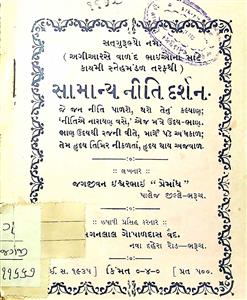 સતગુરૂભ્યો નમઃ
(અગીઆરસે વાળંદ ભાઈઓના માટે
કાયમી સ્નેહમંડળ તરફથી)
સામાન્ય નીતિ દર્શન.
જે જન નીતિ પાળશે, થશે તેનું કલ્યાણ;
'નીતિએ નારાયણ વસે', એજ મંત્ર ઉદય-ભાણ.
ભાણુ ઉદયથી રજની વીતે, માર્ગ પડે ઓળખાણ;
તેમ હૃદય તિમિર નીકળતાં, હૃદય થાય અજવાળ.
લખનાર
જગજીવન ઇશ્વરભાઇ "પ્રેમાંધ"
પાલેજ જીલ્લે-ભરૂચ.
છપાવી પ્રસિદ્ધ કરનાર
મગનલાલ ગોપાળદાસ વૈદ.
નવા દહેરા રોડ-ભરૂચ.
ઈ. સ. ૧૯૩૫ કિંમત ૦-૪-૦ પ્રત ૫૦૦.